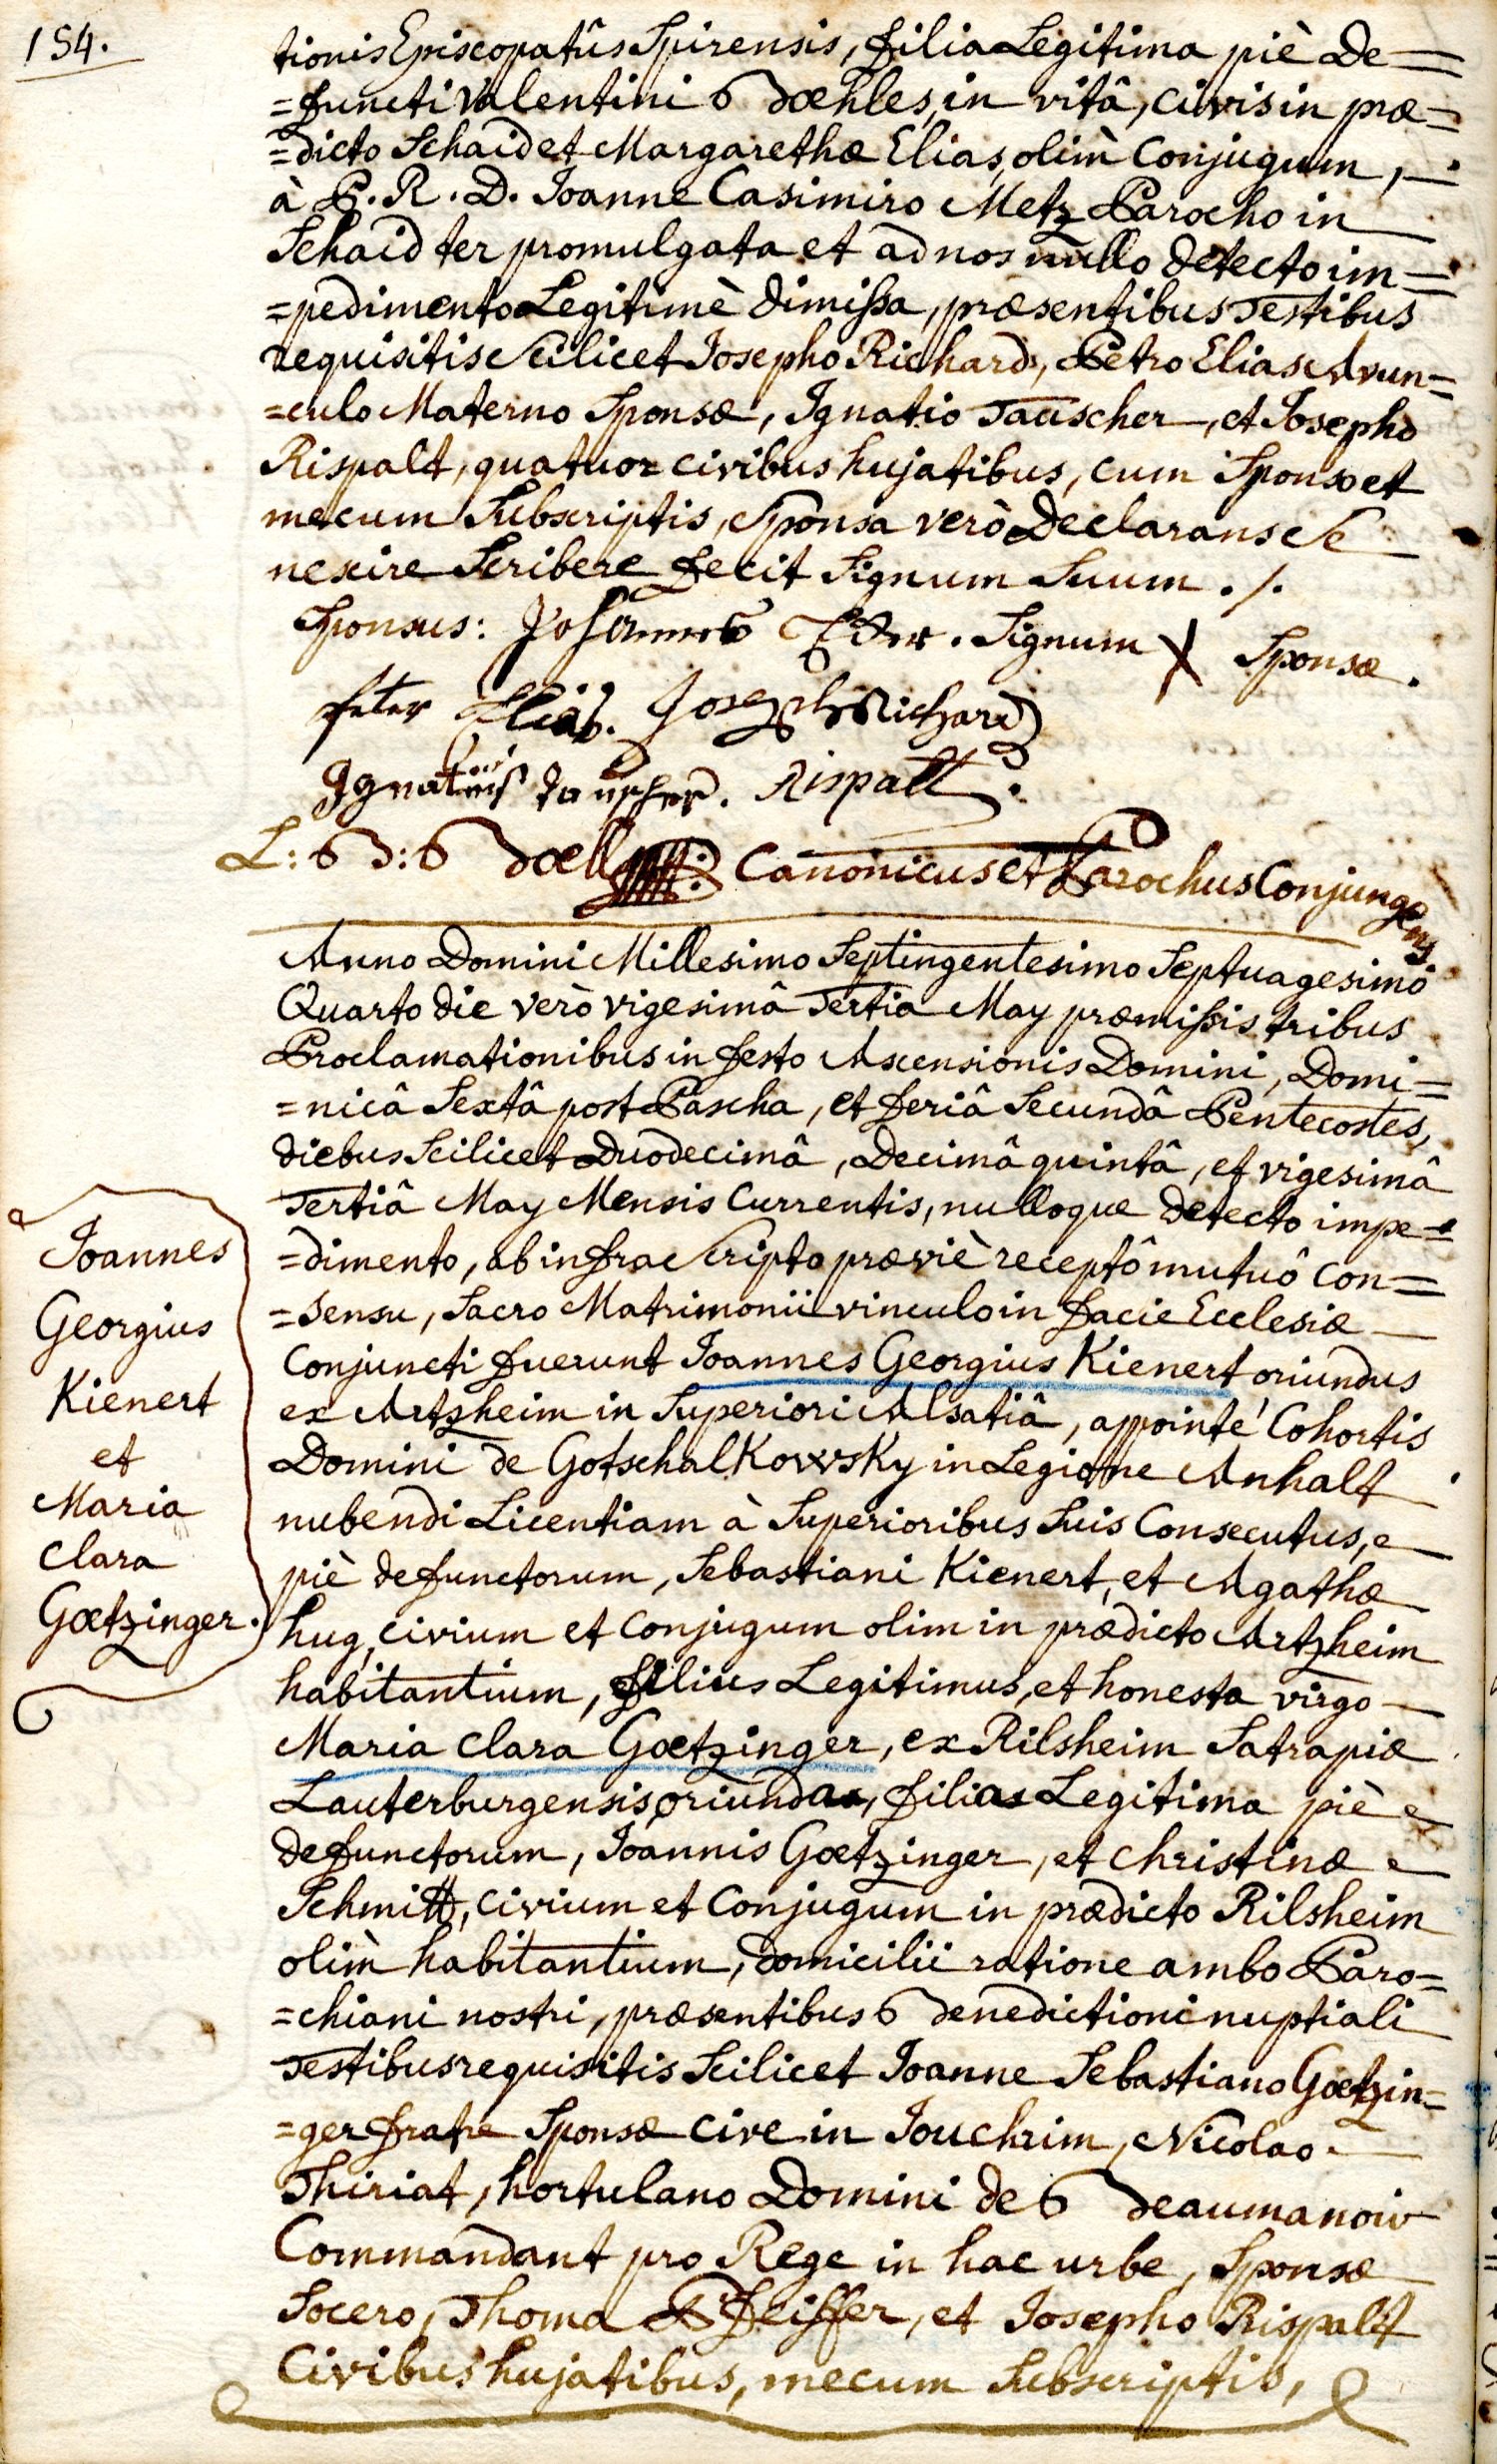 154.
tionis Episcopatûs Spirensis, filia Legitima piè De=
=functi Valentini Boehles, in vitâ, civis in præ=
=dicto Schaid et Margarethæ Elias, olim Conjugum,
à P. R. D. Joanne Casimiro Metz Parocho in
Schaid ter promulgata et ad nos nullo detecto im=
=pedimento Legitimè dimissa, præsentibus Testibus
requisitis scilicet Josepho Richard, Petro Elias Avun=
=culo Materno Sponsæ, Ignatio Tauscher, et Josepho
Rispalt, quatuor civibus hujatibus, cum Sponso et
mecum Subscriptis, Sponsa verò Declarans Se
nescire Scribere fecit Signum Suum ./.
Sponsus: Johannes Eder. Signum X Sponsæ.
Peter Elias. Joseph Richard
Ignatius Tauscher. Rispalt.
L: B: Boell Canonicus et Parochus Conjungens
Anno Domini Millesimo Septingentesimo Septuagesimo
Quarto die verò vigesimâ Tertia May præmissis tribus
Proclamationibus in festo Ascensionis Domini, Domi=
=nicâ Sextâ post Pascha, et feriâ Secundâ Pentecostes,
diebus Scilicet Duodecimâ, Decimâ quintâ, et vigesimâ
Tertiâ May Mensis Currentis, nulloque detecto impe=
=dimento, ab infra Scripto præviè receptô mutuô con=
=sensu, Sacro Matrimonii vinculo in facie Ecclesiæ
Conjuncti fuerunt Joannes Georgius Kienert oriundus
ex Artzheim in Superiori Alsatiâ, appointé Cohortis
Domini de Gotschalkowsky in Legione Anhalt
nubendi Licentiam à Superioribus Suis Consecutus,
piè defunctorum, Sebastiani Kienert, et Agathæ
hug, civium et Conjugum olim in prædicto Artzheim
habitantium, filius Legitimus, et honesta virgo
Maria Clara Goetzinger, ex Rilsheim Satrapiæ
Lauterburgensis, oriunda, filia Legitima piè
defunctorum, Joannis Goetzinger, et Christinæ
Schmitt, civium et Conjugum in prædicto Rilsheim
olim habitantium, domicilii ratione ambo Paro=
=chiani nostri, præsentibus Benedictioni nuptiali
Testibus requisitis Scilicet Joanne Sebastiano Goetzin=
=ger fratre Sponsæ cive in Jouchrim, Nicolao
Thiriat, hortulano Domini de Beaumanoir
Commandant pro Rege in hac urbe, Sponsæ
Socero, Thoma Pfeiffer, et Josepho Rispalt
Civibus hujatibus, mecum Subscriptis,
Joannes
Georgius
Kienert
et
Maria
Clara
Goetzinger.